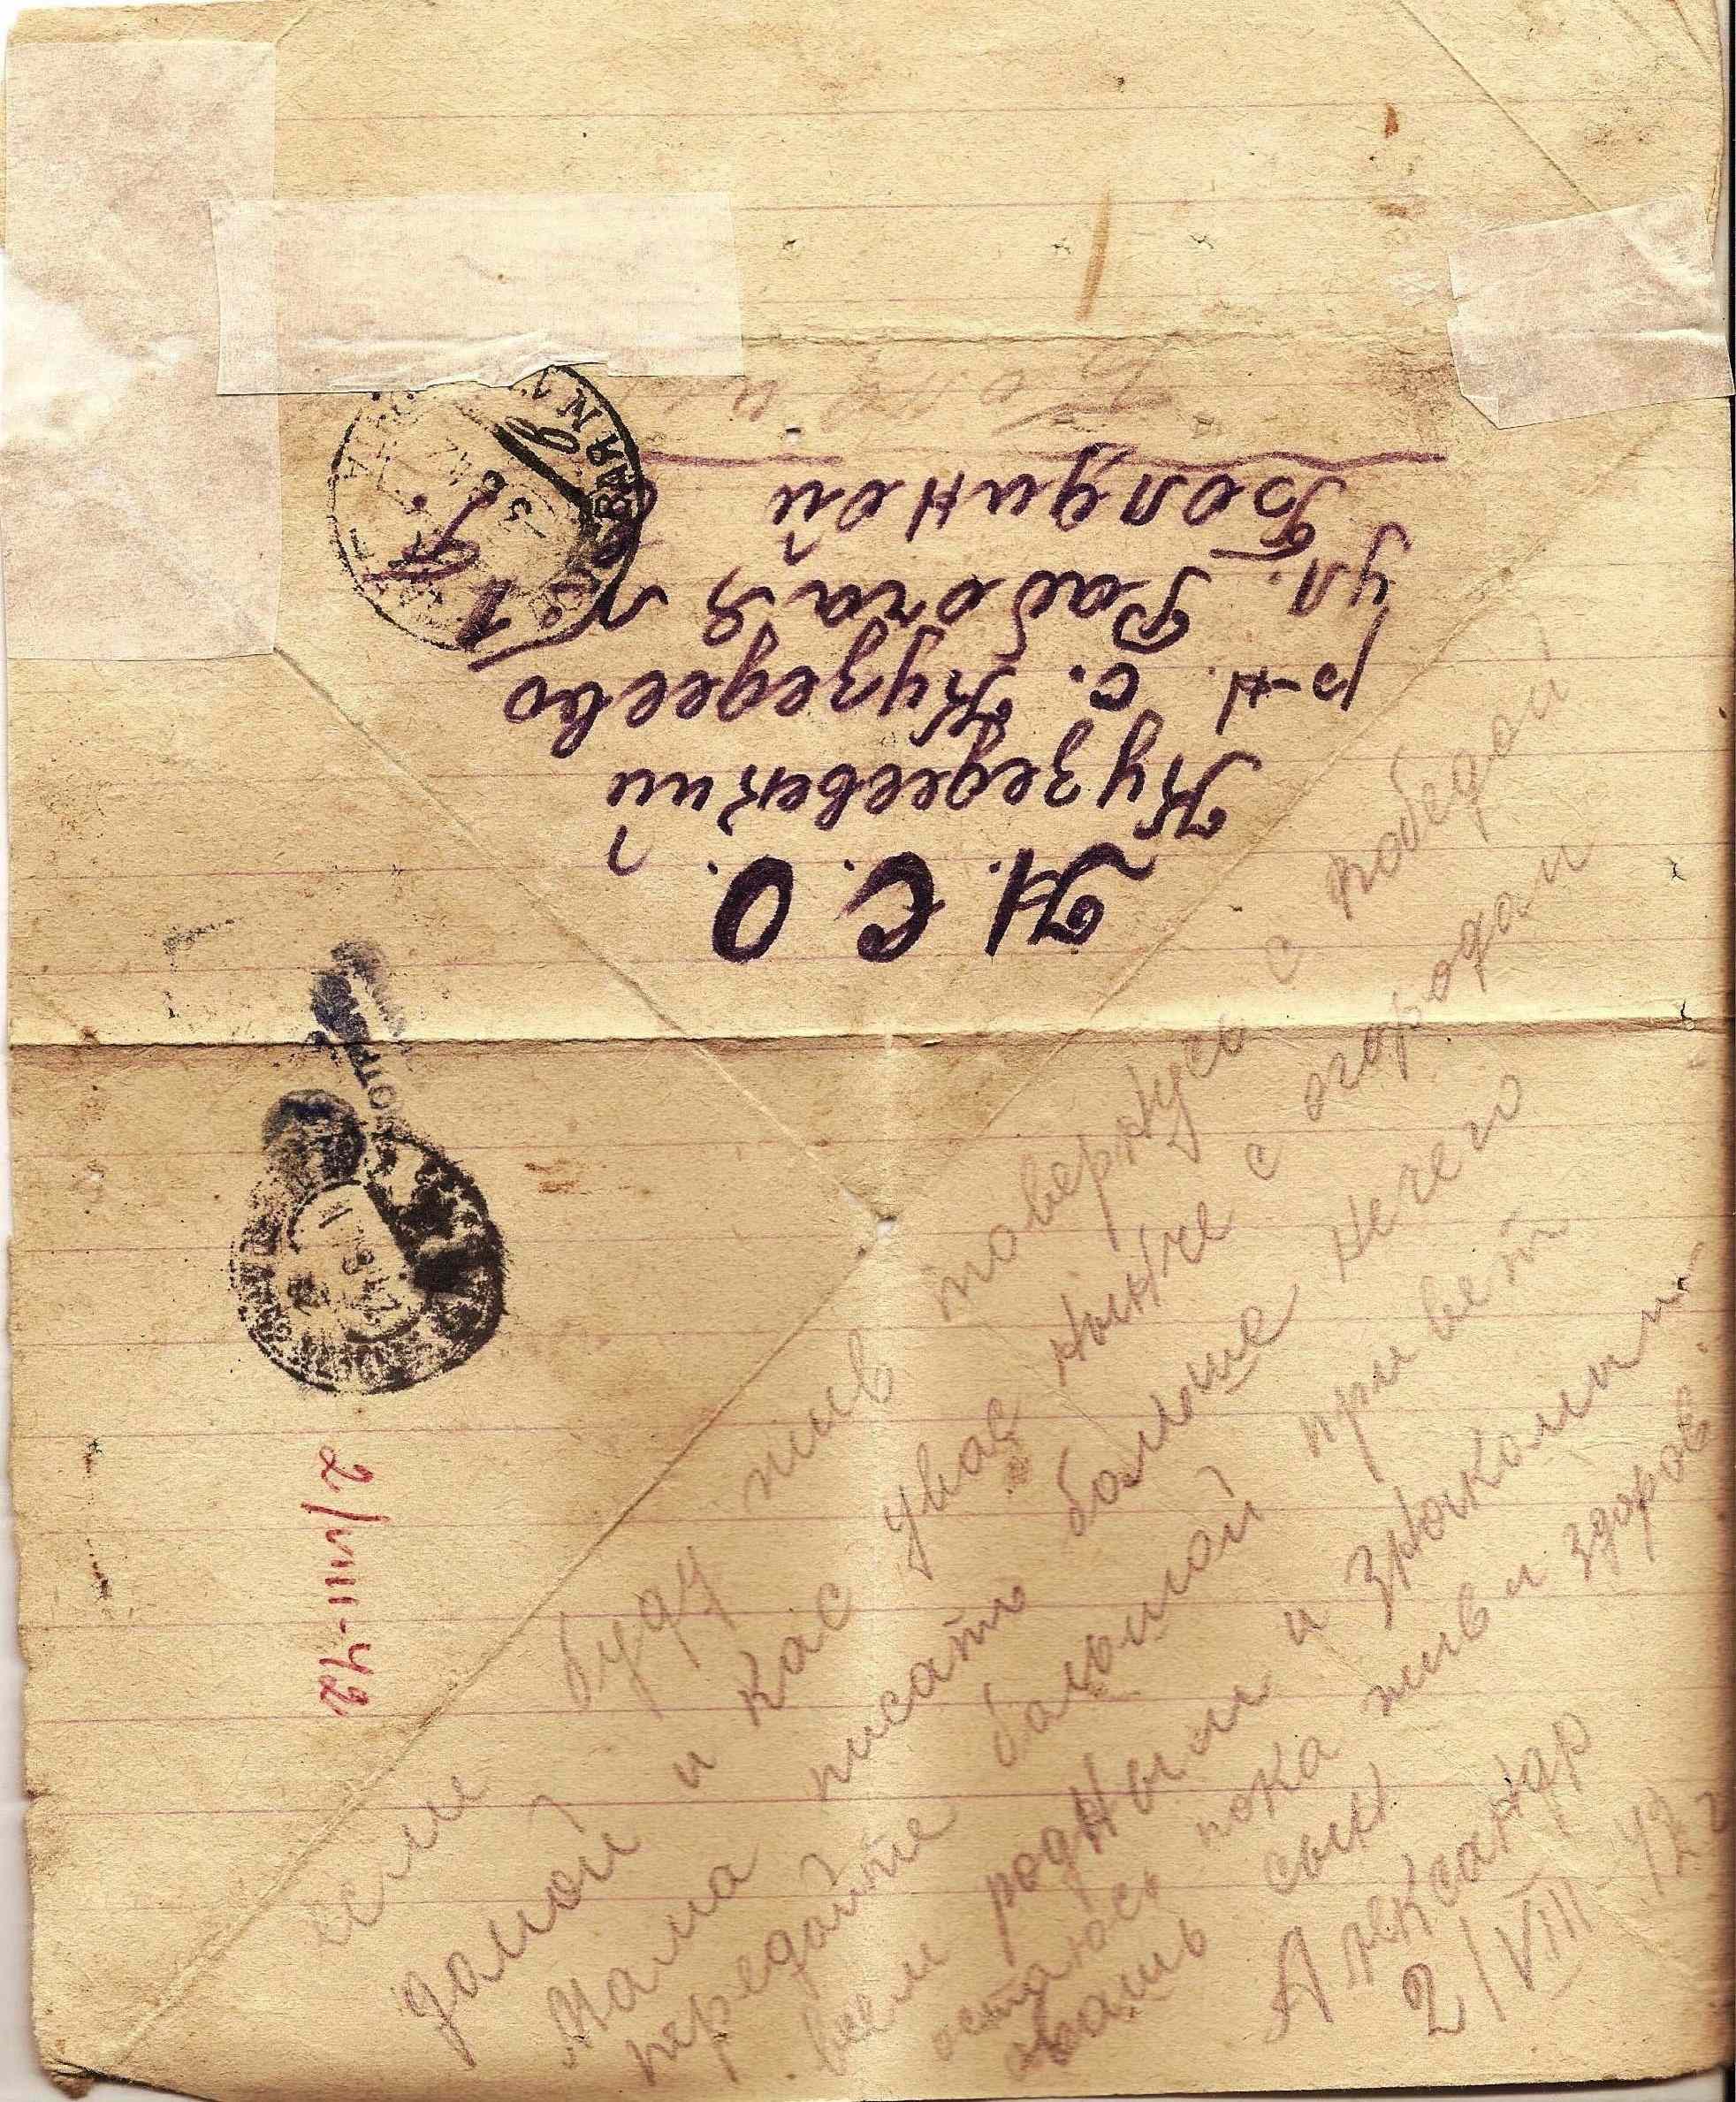 Н. С. О.
Кузедеевский
р-н. с. Кузедеево
ул. Рабочая №1
Белдиной
если буду жив повернусь с победой
дамой и кас увас нынче с огородам
Мама писать больше нечего
передайте большой привет
всем родным и знакомым
остаюсь пока жив и здоров.
ваш сын
Александр
2/VIII-42
2/VIII-42